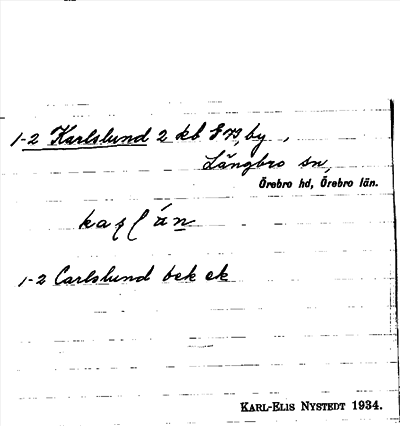 1-2 Karlslund 2 kb f 73, by,
Längbro sn,
Örebro hd, Örebro län.
1-2 Carlslund bek ek
KARL-ELIS NYSTEDT 1934.